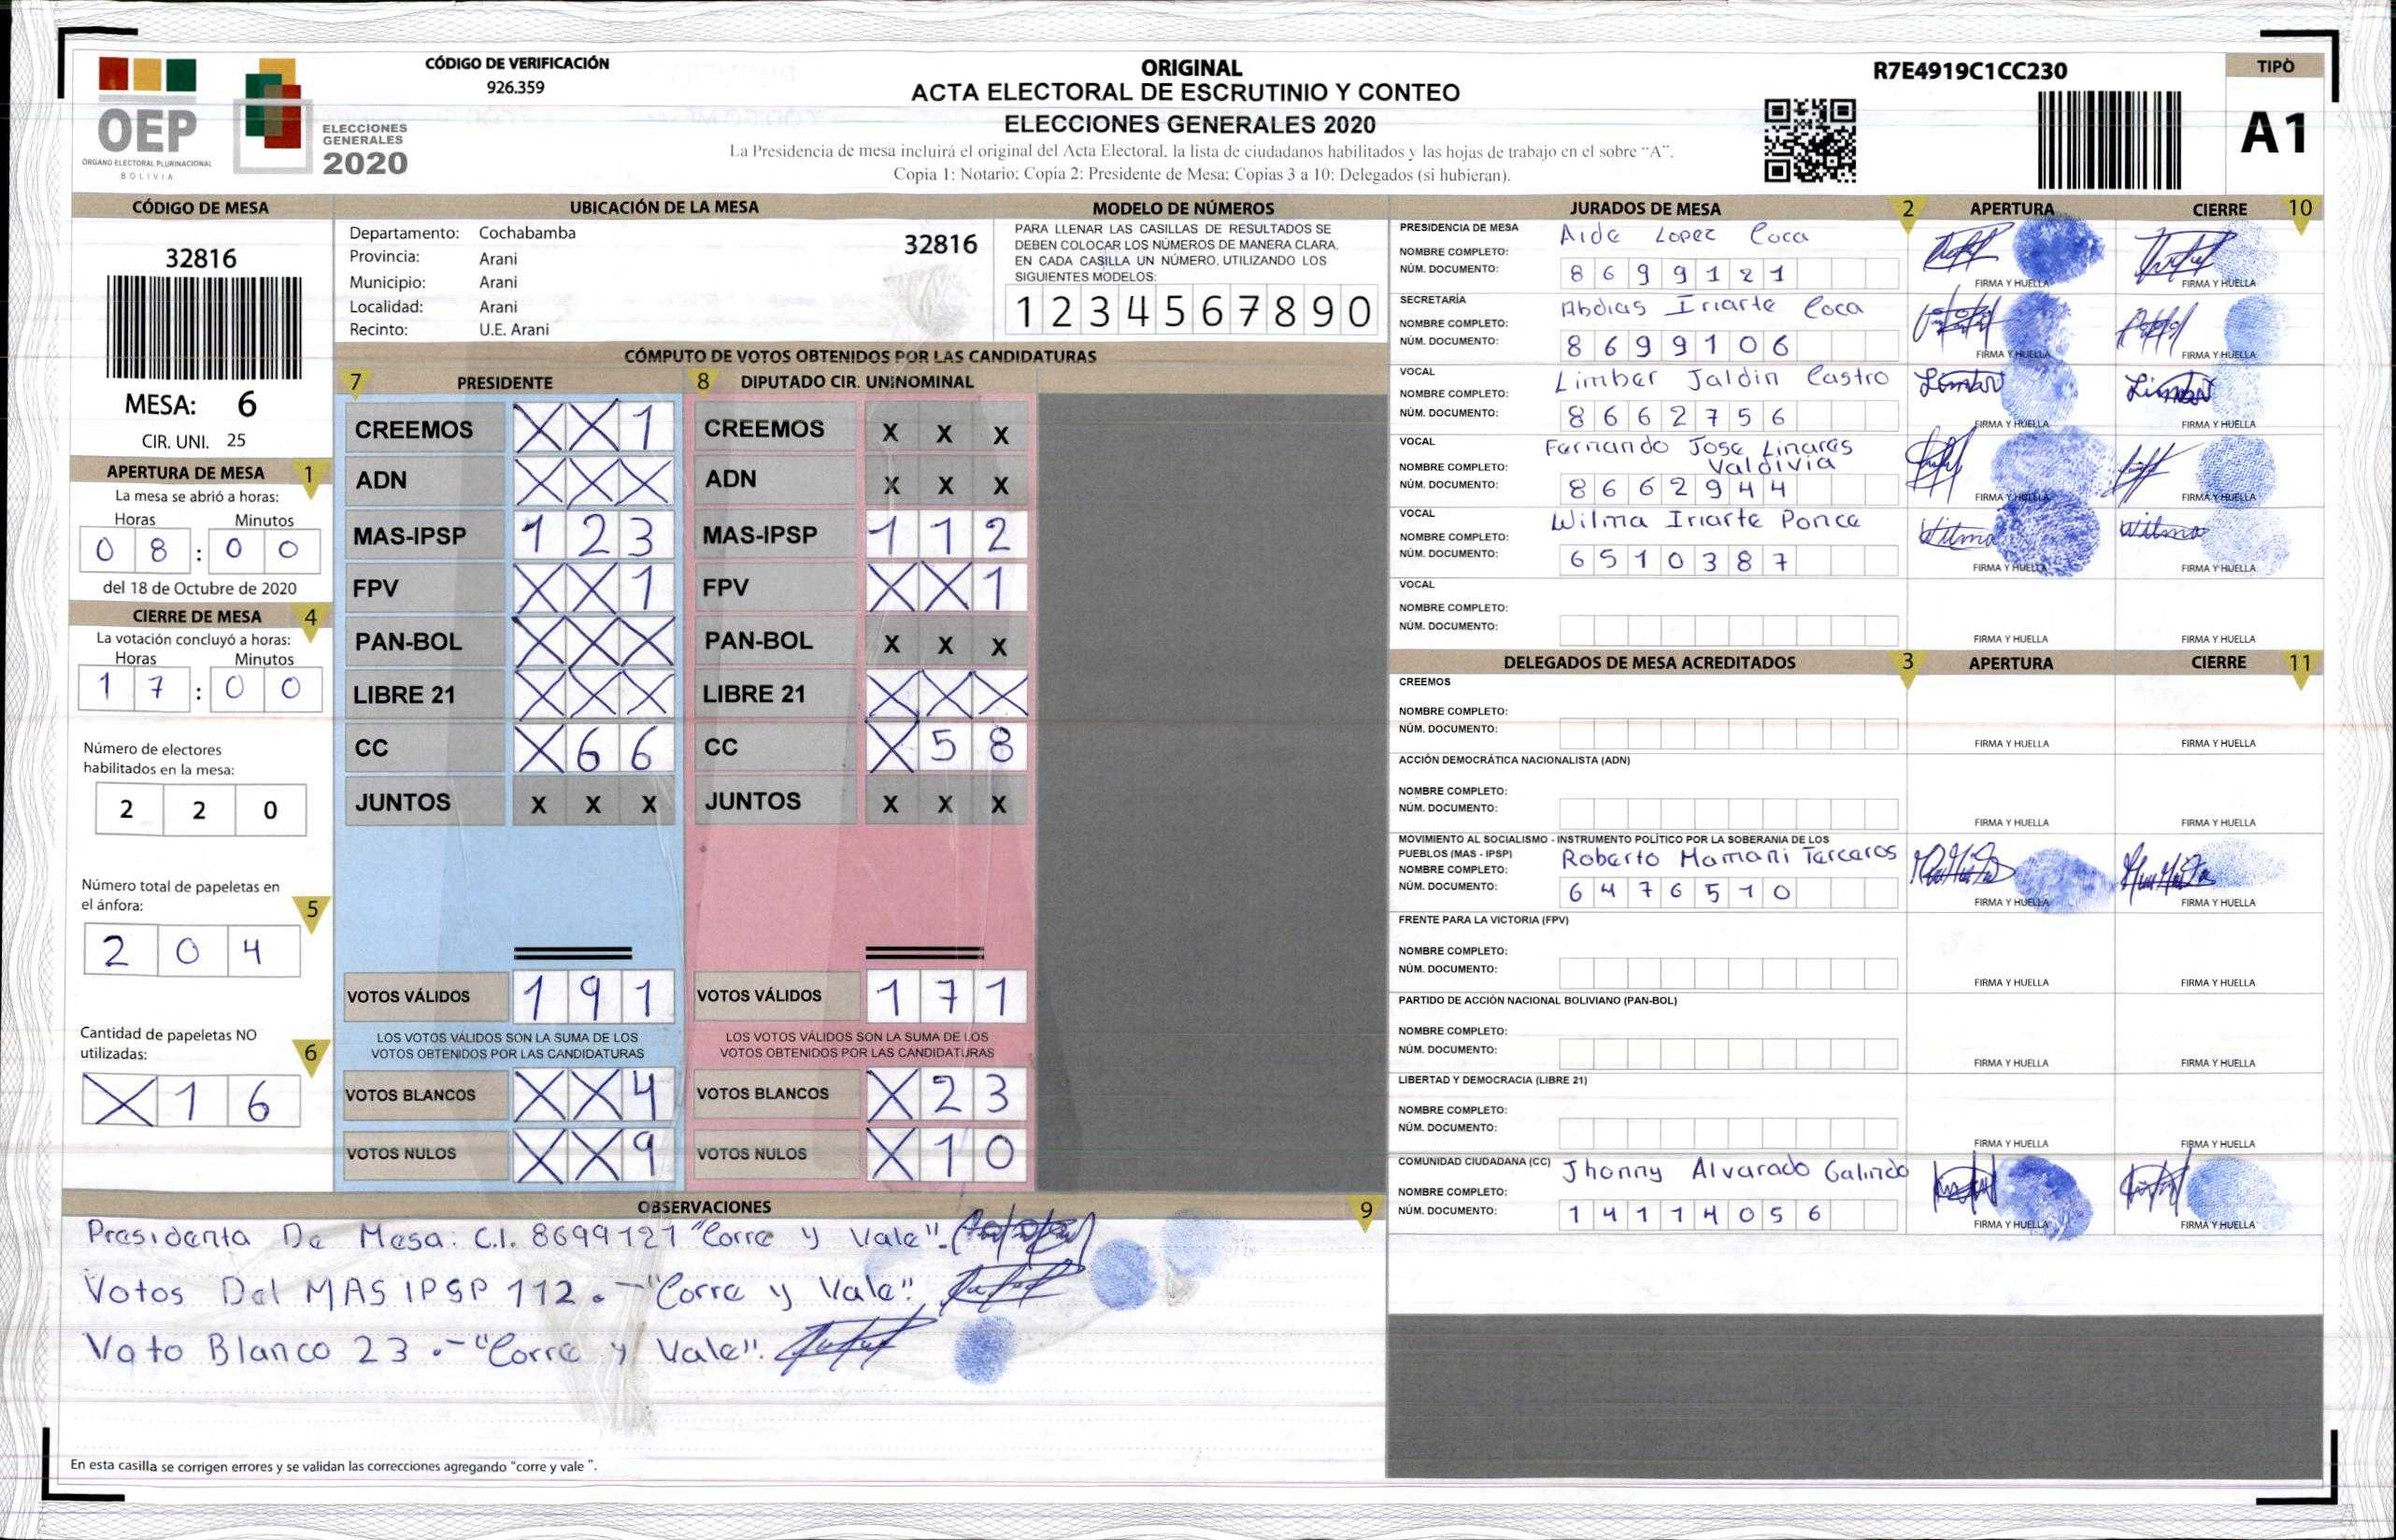 CÓDIGO DE VERIFICACIÓN
926.359
OEP
ÓRGANO ELECTORAL PLURINACIONAL
BOLIVIA
ELECCIONES
GENERALES
2020
ORIGINAL
ACTA ELECTORAL DE ESCRUTINIO Y CONTEO
ELECCIONES GENERALES 2020
La Presidencia de mesa incluirá el original del Acta Electoral, la lista de ciudadanos habilitados y las hojas de trabajo en el sobre "A".
Copia 1: Notario; Copia 2: Presidente de Mesa; Copias 3 a 10; Delegados (si hubieran).
R7E4919C1CC230
TIPO
A1
CÓDIGO DE MESA
32816
MESA: 6
CIR. UNI. 25
APERTURA DE MESA 1
La mesa se abrió a horas:
Horas Minutos
0 8 : 0 0
del 18 de Octubre de 2020
CIERRE DE MESA 4
La votación concluyó a horas:
Horas Minutos
1 7 : 0 0
Número de electores
habilitados en la mesa:
2 2 0
Número total de papeletas en
el ánfora: 5
2 0 4
Cantidad de papeletas NO
utilizadas: 6
X 1 6
UBICACIÓN DE LA MESA
Departamento: Cochabamba 32816
Provincia: Arani
Municipio: Arani
Localidad: Arani
Recinto: U.E. Arani
MODELO DE NÚMEROS
PARA LLENAR LAS CASILLAS DE RESULTADOS SE
DEBEN COLOCAR LOS NÚMEROS DE MANERA CLARA,
EN CADA CASILLA UN NÚMERO, UTILIZANDO LOS
SIGUIENTES MODELOS:
1 2 3 4 5 6 7 8 9 0
CÓMPUTO DE VOTOS OBTENIDOS POR LAS CANDIDATURAS
7 PRESIDENTE 8 DIPUTADO CIR. UNINOMINAL
CREEMOS X X 1 CREEMOS X X X
ADN X X X ADN X X X
MAS-IPSP 1 2 3 MAS-IPSP 1 1 2
FPV X X 1 FPV X X 1
PAN-BOL X X X PAN-BOL X X X
LIBRE 21 X X X LIBRE 21 X X X
CC X 6 6 CC X 5 8
JUNTOS X X X JUNTOS X X X
VOTOS VÁLIDOS 1 9 1 VOTOS VÁLIDOS 1 7 1
LOS VOTOS VÁLIDOS SON LA SUMA DE LOS LOS VOTOS VÁLIDOS SON LA SUMA DE LOS
VOTOS OBTENIDOS POR LAS CANDIDATURAS VOTOS OBTENIDOS POR LAS CANDIDATURAS
VOTOS BLANCOS X X 4 VOTOS BLANCOS X 2 3
VOTOS NULOS X X 9 VOTOS NULOS X 1 0
OBSERVACIONES 9
Presidenta De Mesa: C.I. 8699121 "Corre y Vale".
Votos Del MAS IPSP 112.-"Corre y Vale".
Voto Blanco 23.-"Corre y Vale".
En esta casilla se corrigen errores y se validan las correcciones agregando "corre y vale ".
JURADOS DE MESA 2 APERTURA CIERRE 10
PRESIDENCIA DE MESA
NOMBRE COMPLETO: Aide Lopez Coca
NÚM. DOCUMENTO: 8 6 9 9 1 2 1
FIRMA Y HUELLA FIRMA Y HUELLA
SECRETARÍA
NOMBRE COMPLETO: Abdias Iriarte Coca
NÚM. DOCUMENTO: 8 6 9 9 1 0 6
FIRMA Y HUELLA FIRMA Y HUELLA
VOCAL
NOMBRE COMPLETO: Limber Jaldin Castro
NÚM. DOCUMENTO: 8 6 6 2 7 5 6
FIRMA Y HUELLA FIRMA Y HUELLA
VOCAL
NOMBRE COMPLETO: Fernando Jose Linares
Valdivia
NÚM. DOCUMENTO: 8 6 6 2 9 4 4
FIRMA Y HUELLA FIRMA Y HUELLA
VOCAL
NOMBRE COMPLETO: Wilma Iriarte Ponce
NÚM. DOCUMENTO: 6 5 1 0 3 8 7
Wilma Wilma
FIRMA Y HUELLA FIRMA Y HUELLA
VOCAL
NOMBRE COMPLETO:
NÚM. DOCUMENTO:
FIRMA Y HUELLA FIRMA Y HUELLA
DELEGADOS DE MESA ACREDITADOS 3 APERTURA CIERRE 11
CREEMOS
NOMBRE COMPLETO:
NÚM. DOCUMENTO:
FIRMA Y HUELLA FIRMA Y HUELLA
ACCIÓN DEMOCRÁTICA NACIONALISTA (ADN)
NOMBRE COMPLETO:
NÚM. DOCUMENTO:
FIRMA Y HUELLA FIRMA Y HUELLA
MOVIMIENTO AL SOCIALISMO - INSTRUMENTO POLÍTICO POR LA SOBERANIA DE LOS
PUEBLOS (MAS - IPSP)
NOMBRE COMPLETO: Roberto Mamani Terceros
NÚM. DOCUMENTO: 6 4 7 6 5 1 0
FIRMA Y HUELLA FIRMA Y HUELLA
FRENTE PARA LA VICTORIA (FPV)
NOMBRE COMPLETO:
NÚM. DOCUMENTO:
FIRMA Y HUELLA FIRMA Y HUELLA
PARTIDO DE ACCIÓN NACIONAL BOLIVIANO (PAN-BOL)
NOMBRE COMPLETO:
NÚM. DOCUMENTO:
FIRMA Y HUELLA FIRMA Y HUELLA
LIBERTAD Y DEMOCRACIA (LIBRE 21)
NOMBRE COMPLETO:
NÚM. DOCUMENTO:
FIRMA Y HUELLA FIRMA Y HUELLA
COMUNIDAD CIUDADANA (CC)
NOMBRE COMPLETO: Jhonny Alvarado Galindo
NÚM. DOCUMENTO: 1 4 1 1 4 0 5 6
FIRMA Y HUELLA FIRMA Y HUELLA